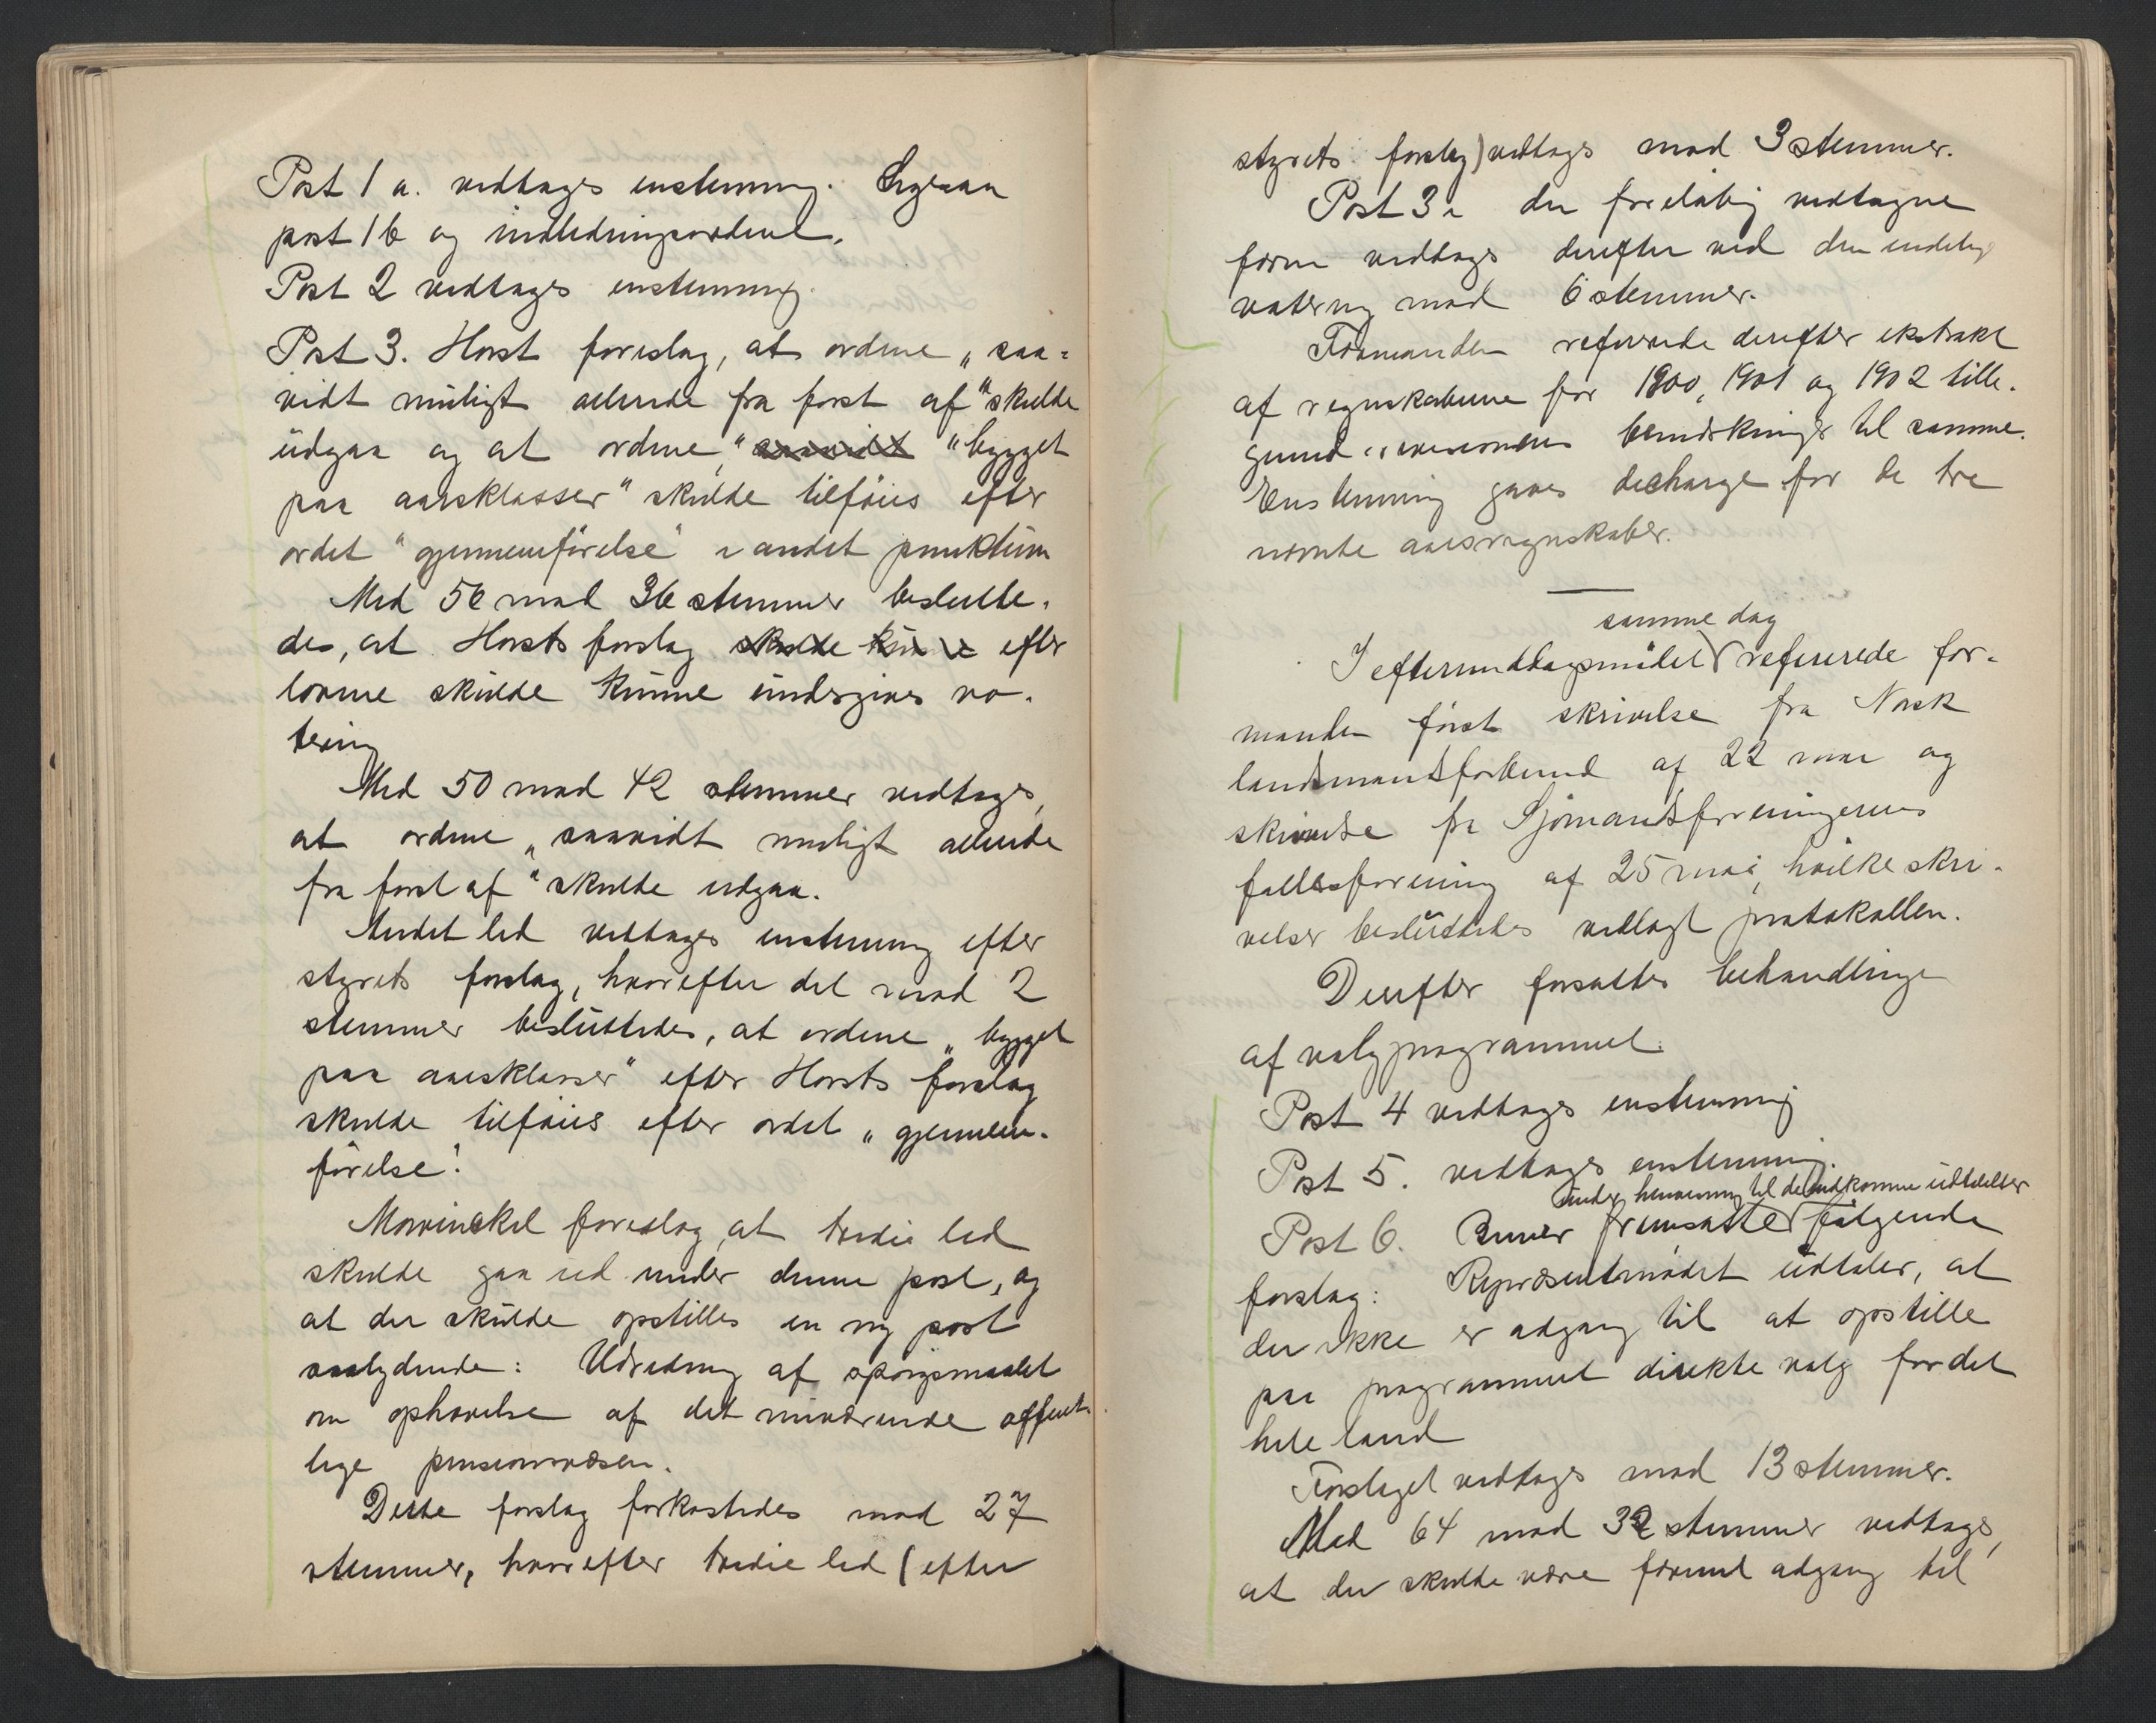 Post 1 a. vedtages enstemmig. Ligesaa
post 1 b og indledningsordene.
Post 2 vedtages enstemmig.
Post 3. Horst foreslog, at ordene „saa-
vidt muligt allerede fra først af" skulde
udgaa og at ordene „bygget
paa aarsklasser" skulde tilføies efter
ordet "gjennemførelse" i andet punktum
Med 56 mod 36 stemmer beslutte-
des, at Horsts forslag efter
lovene skulde kunne undergives vo-
tering
Med 50 mod 42 stemmer vedtages,
at ordene „saavidt muligt allerede
fra først af" skulde udgaa.
Andet led vedtages enstemmig efter
styrets forslag, hvorefter det mod 2
stemmer besluttedes, at ordene „bygget
paa aarsklasser" efter Horsts forslag
skulde tilføies efter ordet „gjennem-
førelse".
Mowinckel foreslog, at tredie led
skulde gaa ud under denne post, og
at der skulde opstilles en ny post
saalydende: Udredning af spørgsmaalet
om ophævelse af det nuværende offent-
lige pensionsvæsen.
Dette forslag forkastedes mod 27
stemmer, hvorefter tredie led (efter
styrets forslag) vedtages mod 3 stemmer.
Post 3 i den foreløbig vedtagne
form vedtages derefter ved den endelig
votering mod 6 stemmer.
Formanden refererede derefter ekstrakt
af regnskaberne for 1900, 1901 og 1902 tille-
gemed revisionens bemærkninger til samme.
Enstemmig gaves decharge for de tre
nævnte aarsregnskaber.
samme dag
I eftermiddagsmødet refererede for-
manden først skrivelse fra Norsk
landsmandsforbund af 22 mai og
skrivelse fra Sjømandsforeningernes
fællesforening af 25 mai, hvilke skri-
velser besluttedes vedlagt protokollen.
Derefter forsattes behandlingen
af valgprogrammet.
Post 4 vedtages enstemmig
Post 5. vedtages enstemmig.
under henvisning til de indkomne udtalelser
Post 6. fremsatte følgende
forslag: Repræsentmødet udtaler, at
der ikke er adgang til at opstille
paa programmet direkte valg for det
hele land
Forslaget vedtages mod 13 stemmer.
Med 64 mod 32 stemmer vedtages,
at der skulde være formel adgang til